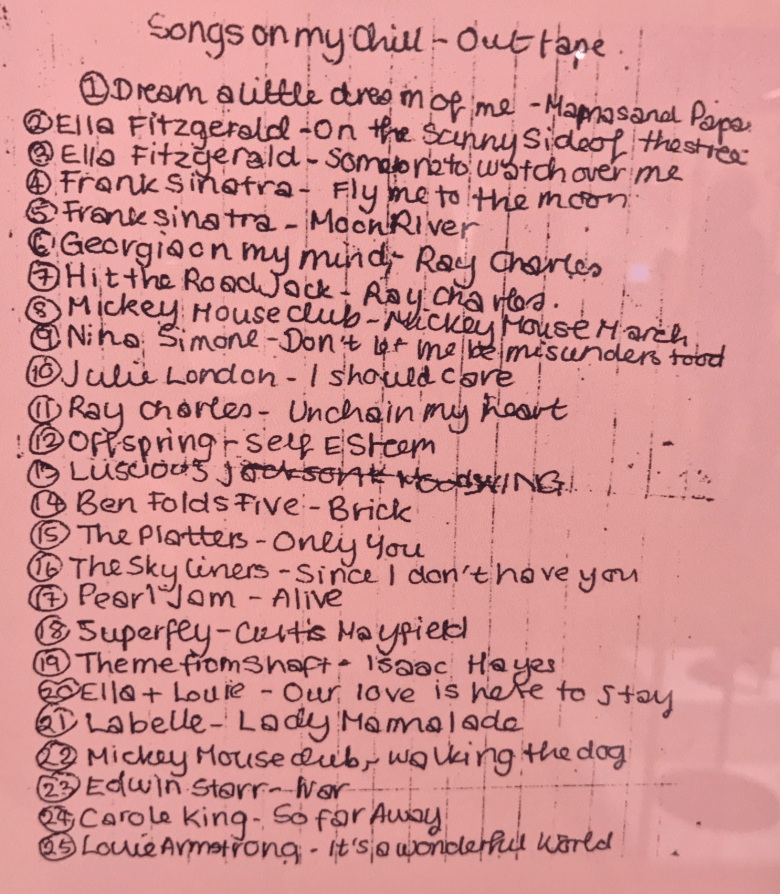 Songs on my Chill-Out tape.
① Dream a little dream of me - Mamas and Papas
② Ella Fitzgerald - On the Sunny Side of the stree
③ Ella Fitzgerald - Someone to watch over me
④ Frank Sinatra - Fly me to the moon
⑤ Frank sinatra - Moon River
⑥ Georgia on my mind - Ray Charles
⑦ Hit the Road Jack - Ray Charles.
⑧ Mickey Mouse club - Mickey Mouse March
⑨ Nina Simone - Don't let me be misunderstood
⑩ Julie London - I should care
⑪ Ray charles - Unchain my heart
⑫ Offspring - Self Esteem
⑬ Luscious Jackson - MoodSWING
⑭ Ben Folds Five - Brick
⑮ The Platters - Only You
⑯ The Sky liners - Since I don't have you
⑰ Pearl Jam - Alive
⑱ Superfly - Curtis Mayfield
⑲ Theme from Shaft - Isaac Hayes
⑳ Ella + Louie - Our love is here to stay
㉑ Labelle - Lady Mamalade
㉒ Mickey Mouse club - walking the dog
㉓ Edwin Starr - War
㉔ Carole King - So far Away
㉕ Louie Armstrong - It's a wonderful World